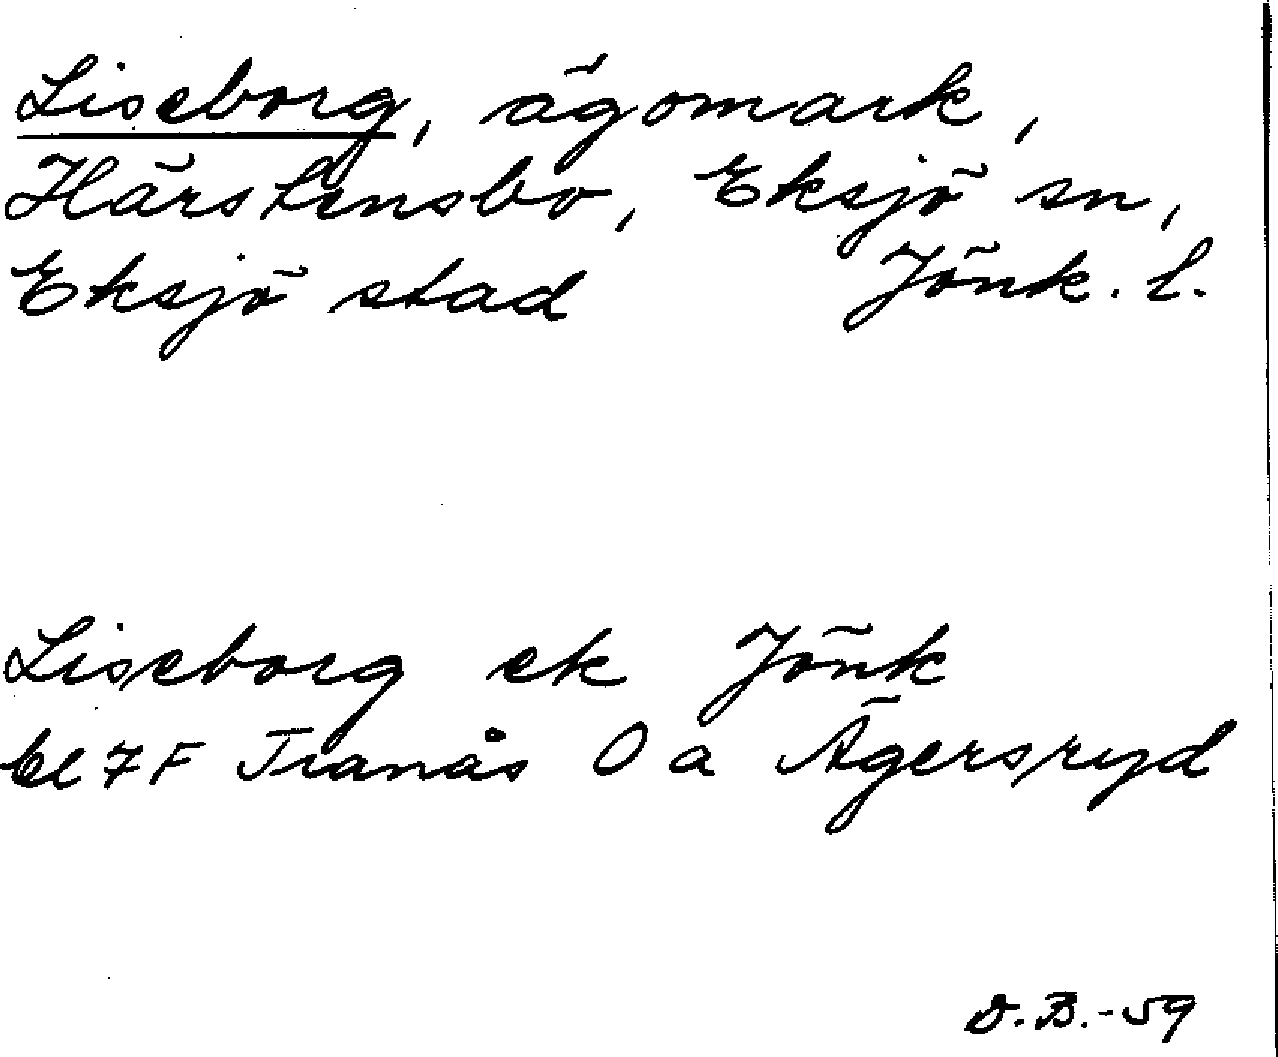 Liseborg, ägomark,
Härstensbo, Eksjö sn,
Eksjö stad Jönk. l.
Liseborg ek Jönk
bl 7F Tranås O a Ägersryd
D.B.-59